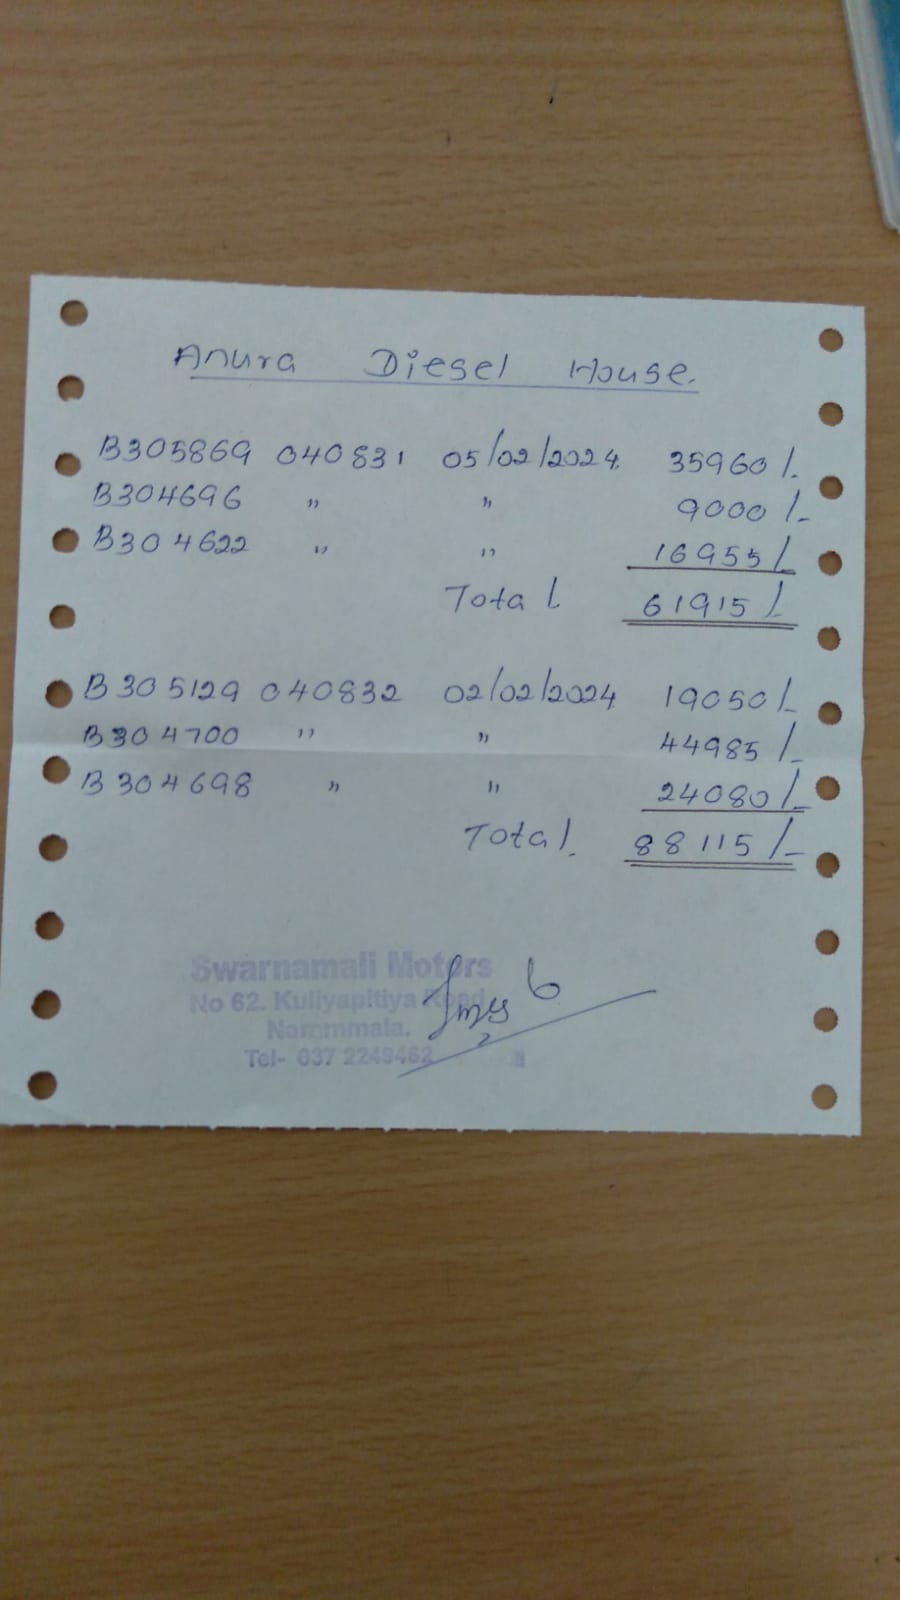 Anura Diesel House.
B305869 040831 05/02/2024 35960/-
B304696 " " 9000/-
B304622 " " 16955/-
Total 61915/-
B305129 040832 02/02/2024 19050/-
B304700 " " 44985/-
B304698 " " 24080/-
Total. 88115/-
Swarnamali Motors
No 62. Kuliyapitiya Road
Narammala.
Tel- 037 2249462